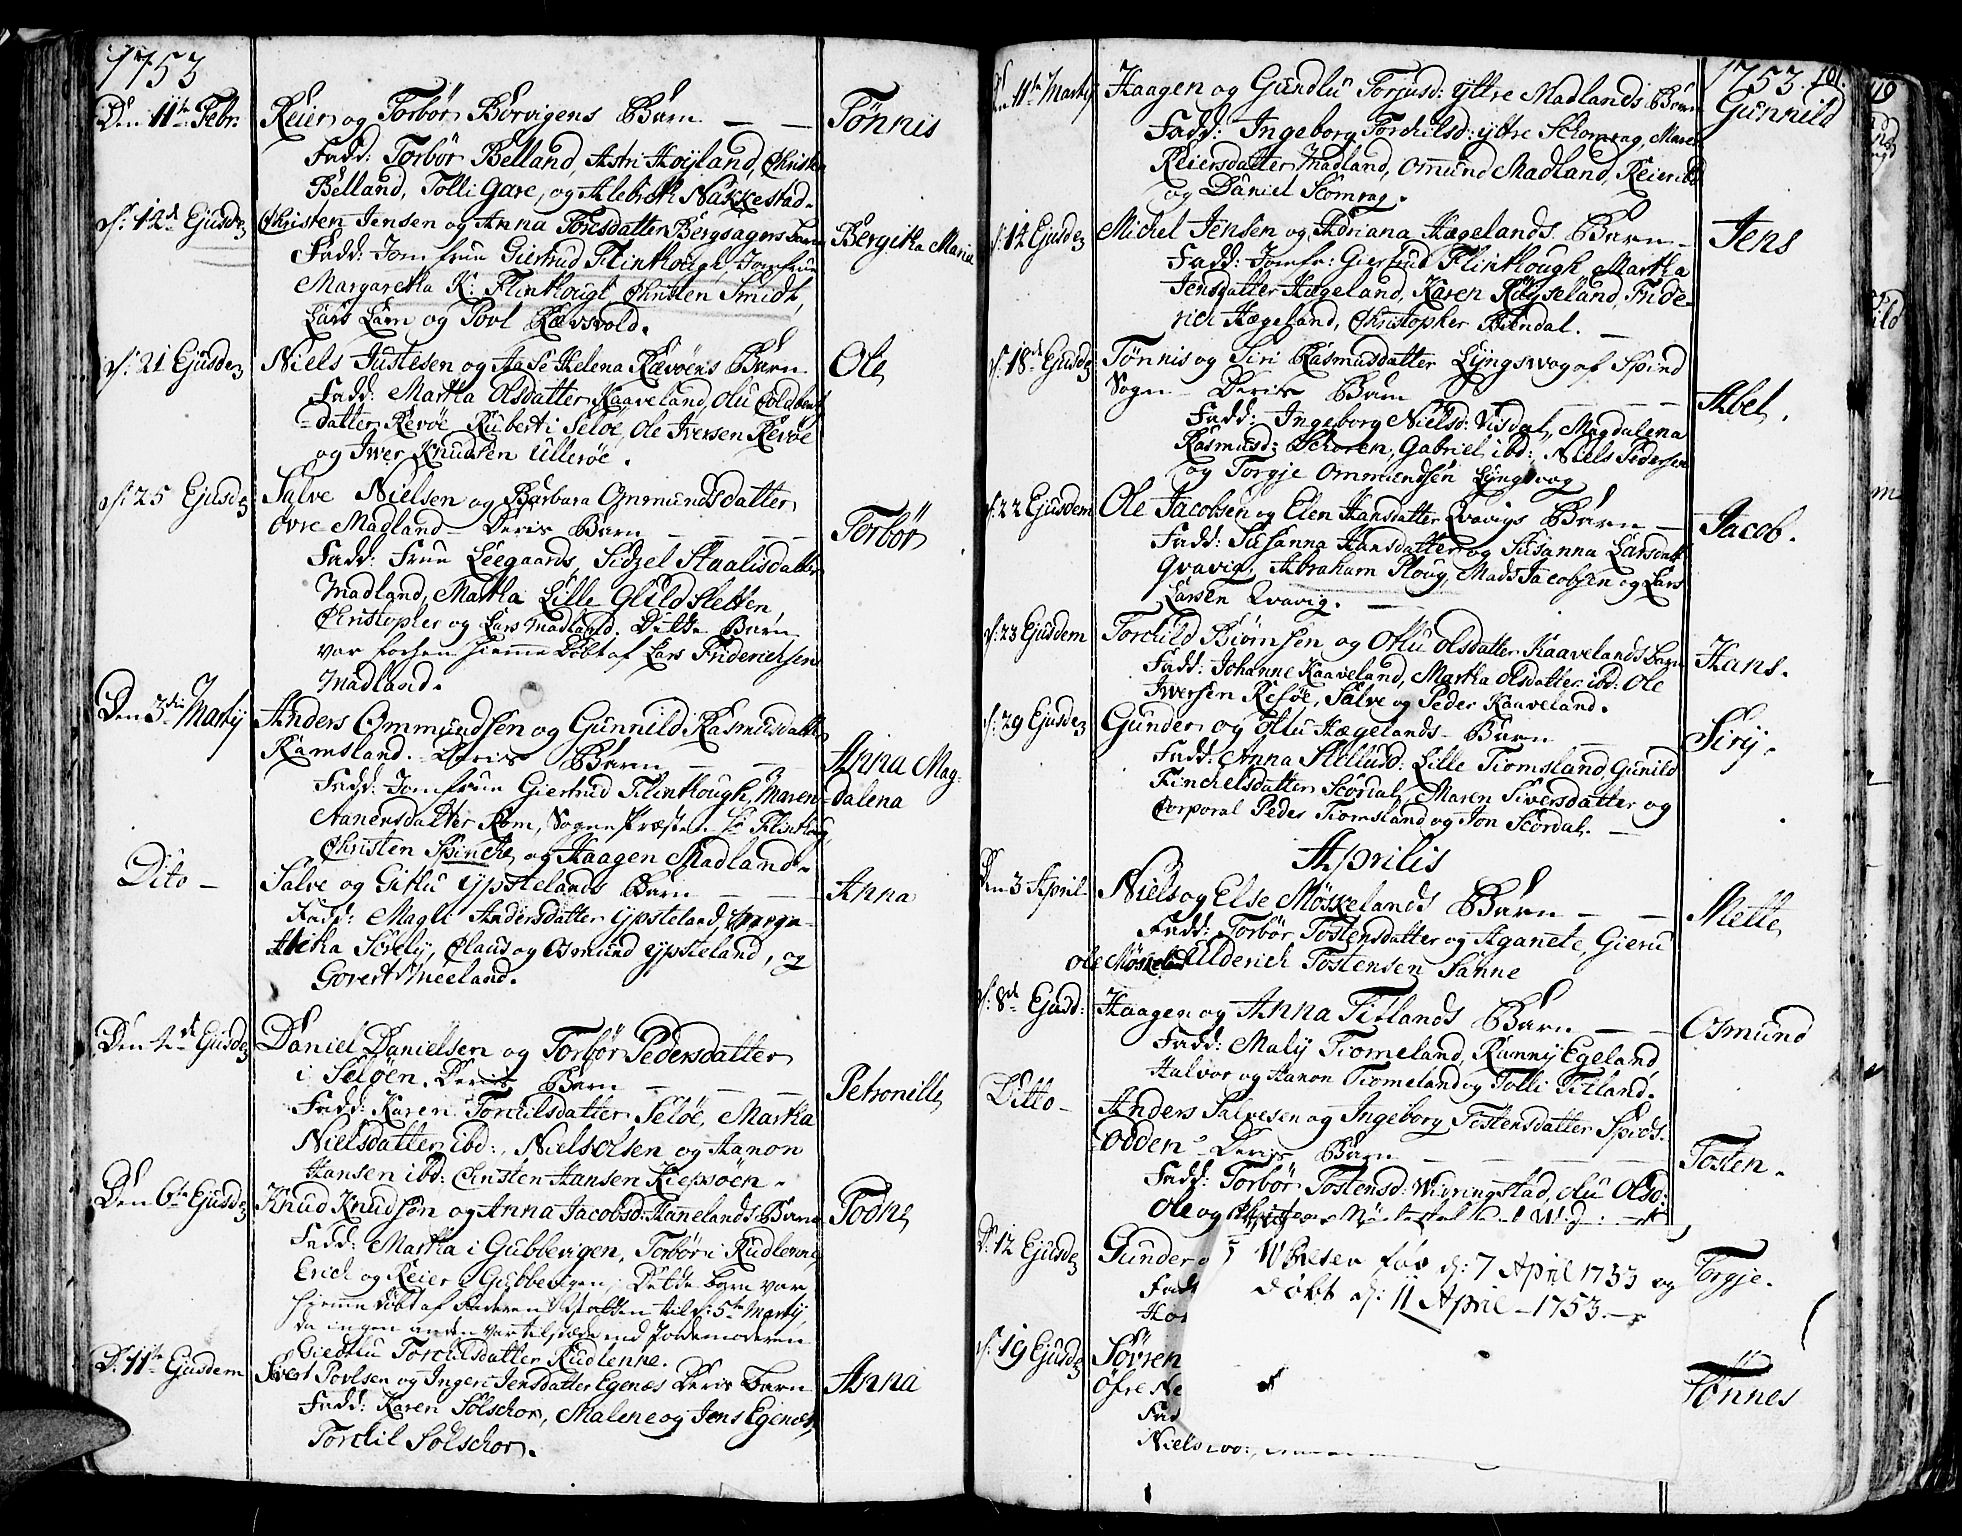 1753
Den 11te Febr. Reier og Torbør Borvigens Barn — — Tønnis
Fadd: Torbør Belland, Astri Høyland, Christen
Belland, Tolli Gare, og Alebreth Nakkestad.
d: 14de Ejusdem Christen Jensen og Anna Tonisdatter Bergsagers Barn Bergitha Maria
Fadd: Jomfrue Giertrud Flinthough, Jomfrue
Margaretha K: Flinthougt, Christen Smidt,
Lars Lam og Povl Røevold.
d: 21 Ejusdem Niels Justesen og Aase Helena Rævøens Barn Ole
Fadd: Martha Olsdatter Kaaveland, Olu
datter Revøe, Rubert i Seløe, Ole Iversen Revøe
og Iwer Knudsen Ullerøe.
d: 25 Ejusdem Salve Nielsen og Barbara Ommundsdatter
øvre Madland Deris Barn — — — Torbør
Fadd: Frue Leegaards, Sidzel Staalisdatter
Madland, Martha Lille Guldsletten,
Christopher og Lars Madland. Dette Barn
var forhen hiemme døbt af Lars Friderichsen
Madland.
Den 3die Martij Anders Ommundsen og Gunnild Rasmusdatter
Ramsland. Deris Barn — — Anna Mag-
Fadd: Jomfrue Giertrud Flinthough, Maren -dalena
Aanensdatter Rom, Sogne Præsten Hr Flinthoug,
Christen Spinche og Haagen Madland.
Dito — Salve og Githu Ypstelands Barn — — Anna
Fadd: Magli Andersdatter Ypsteland, Marga-
retha Sørely, Claus og Osmund Ypsteland, og
Govert Meeland.
Den 4de Ejusdem Daniel Danielsen og Torbør Pedersdatter
i Seløen. Deris Barn — — Petronille
Fadd: Karen Torchilsdatter Seløe, Martha
Nielsdatter ibd:, Niels Olsen og Hanon
Hansen ibd: Christen Hansen Kiepsøen.
Den 6te Ejusdem Knud Knudsen og Anna Jacobsd: Hanelands Barn Todne
Fadd: Martha i Gubbevigen, Torbør i Rudlenne,
Erich og Reier i Gubbevigen. Dette barn var
hiemme døbt af Faderen d: 5te Martij,
da ingen anden var tilstæde end Jordemoderen
Torchilsdatter Rudlenne.
D: 11te Ejusdem Sivert Povlsen og Ingeri Jensdatter Egenæs Deris Barn Anna
Fadd: Karen Solschor, Malene og Jens Egenæs,
Torchil Solschor.
1753. 101.
d: 11te Martij Haagen og Gundlu Torjusd: yttre Madlands Barn Gunnild
Fadd: Ingeborg Torchilsd: yttre Schomrag, Maren
Reiersdatter Madland, Ommund Madland, Reier ibd:
og Daniel Scomrag.
d: 14 Ejusdem Michel Jensen og Adriana Hægelands Barn — Jens
Fadd: Jomfr: Giertrud Flinthough, Martha
Jensdatter Hægeland, Karen Røyseland, Fride-
rich Hægeland, Christopher Birndal. —
d: 18de Ejusdem Tønnis og Siri Rasmusdatter Lyngswog af Spind
Sogn — Deris Barn — — — Abel.
Fadd: Ingeborg Nielsd: Visdal, Magdalena
Rasmusd: Schoren, Gabriel ibd:, Niels Pedersen
og Torgje Ommundsen Lyngswog
d: 22 Ejusdem Ole Jacobsen og Elen Hansdatter Qvavigs Barn — Jacob.
Fadd: Susanna Hansdatter og Susanna Larsdatt:
Qvavig, Abraham Ploug, Mads Jacobsen og Lars
Larsen Qvavig. —
d: 23 Ejusdem Torchild Biørnsen og Ollu Olsdatter Kaavelands Barn Hans.
Fadd: Johanne Kaaveland, Martha Olsdatter ibd: Ole
Iwersen Refsøe, Salve og Peder Kaaveland.
d: 29 Ejusdem Gunder og Ollu Hægelands Barn — Sirij.
Fadd: Anna Lille Tiomsland, Gunild
Kinchelsdatter Scordal, Maren Siversdatter og
Corporal Peder Tiomsland og Jon Scordal. —
Aprilis
Den 3 April Niels og Else Møskelands Barn — — Mette
Fadd: Torbør Tostensdatter og Aganete, Gieru
Ole Møskeland Ulderich Tostensen Sanne
d: 8de Ejusd: Haagen og Anna Titlands Barn — — Osmund
Fadd: Malij Tiomeland, Runny Egeland,
Halvor og Hanon Tiomeland og Tolli Titland.
Ditto — Anders Salvesen og Ingeborg Tostensdatter Spids-
-odden — Deris Barn — — — Tosten.
Fadd: Torbør Tostensd: Widringstad, Olu Olsd:
Ole og
D: 12 Ejusdem Gunder Torgje.
Fadd
d: 7 April 1753 og
døbt d: 11 April — 1753. —
d: 19 Ejusdem Søvren
Øfre Ne Tønnes
Fad
Niels